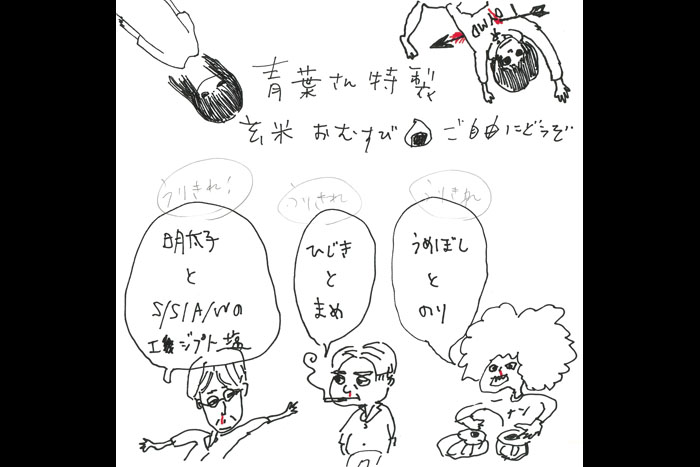 青葉さん特製
玄米 おむすび ご自由にどうぞ
うりきれ!
明太子
と
S/S/A/Wの
エジプト塩
うりきれ
ひじき
と
まめ
うりきれ
うめぼし
と
のり
ナン